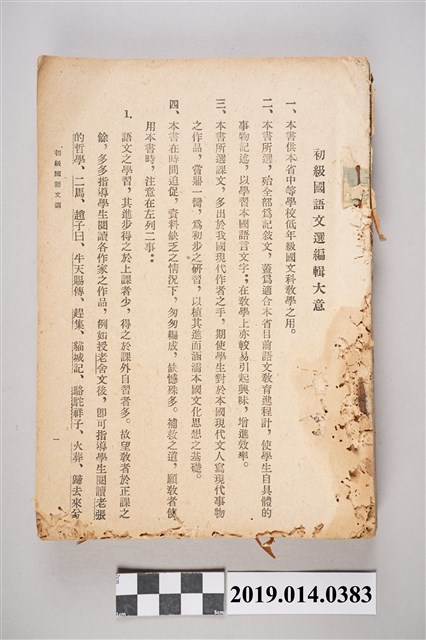 初級國語文選編輯大意
一、本書供本省中等學校低年級國文科教學之用。
二、本書所選，殆全部爲記敘文，蓋爲適合本省目前語文教育進程計，使學生自具體的
事物記述，以學習本國語言文字；在教學上亦較易引起興味，增進效率。
三、本書所選課文，多出於我國現代作者之手，期使學生對於本國現代文人寫現代事物
之作品，嘗鼎一臠，爲初步之研習，以植其進而涵濡本國文化思想之基礎。
四、本書在時間迫促，資料缺乏之情況下，匆匆編成，缺憾殊多。補救之道，願教者使
用本書時，注意在左列二事：
1. 語文之學習，其進步得之於上課者少，得之於課外自習者多。故望教者於正課之
餘，多多指導學生閱讀各作家之作品，例如授老舍文後，卽可指導學生閱讀老張
的哲學、二馬、趙子曰、牛天賜傳、趕集、貓城記、駱駝祥子、火葬、歸去來兮
初級國語文選
一
2019.014.0383